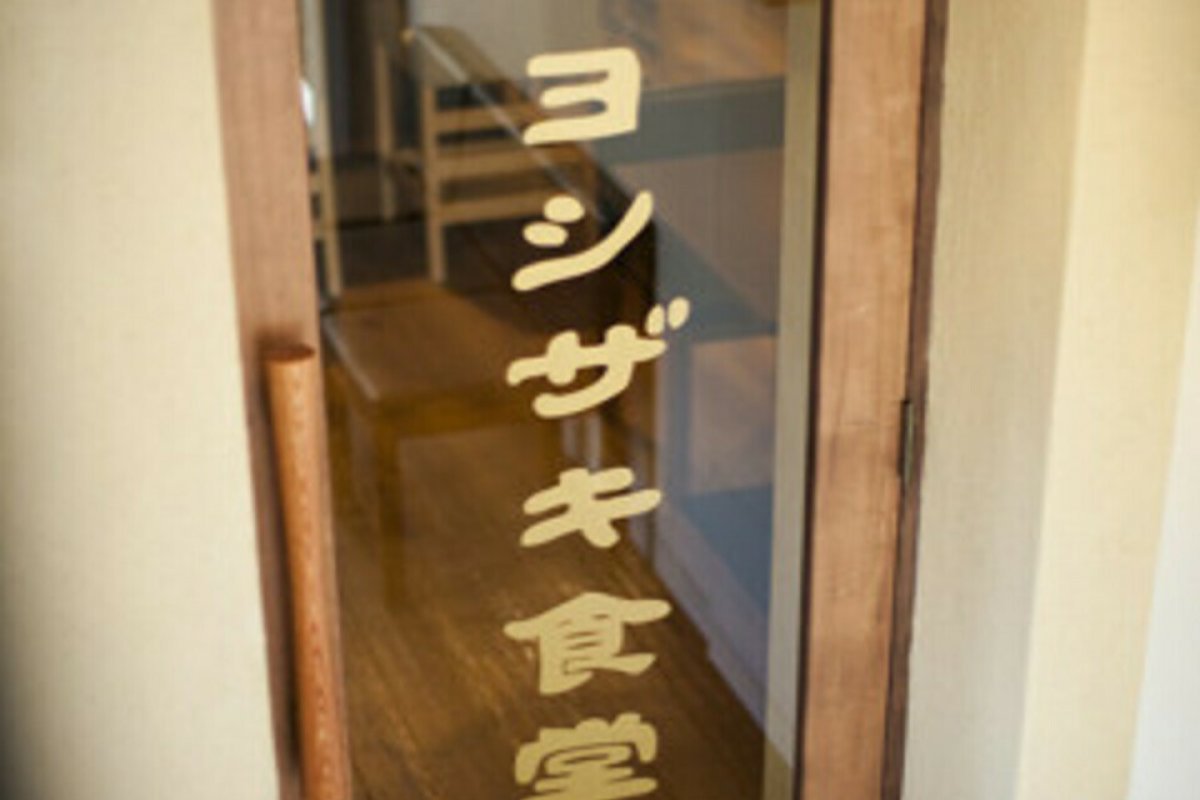 ヨシザキ食堂